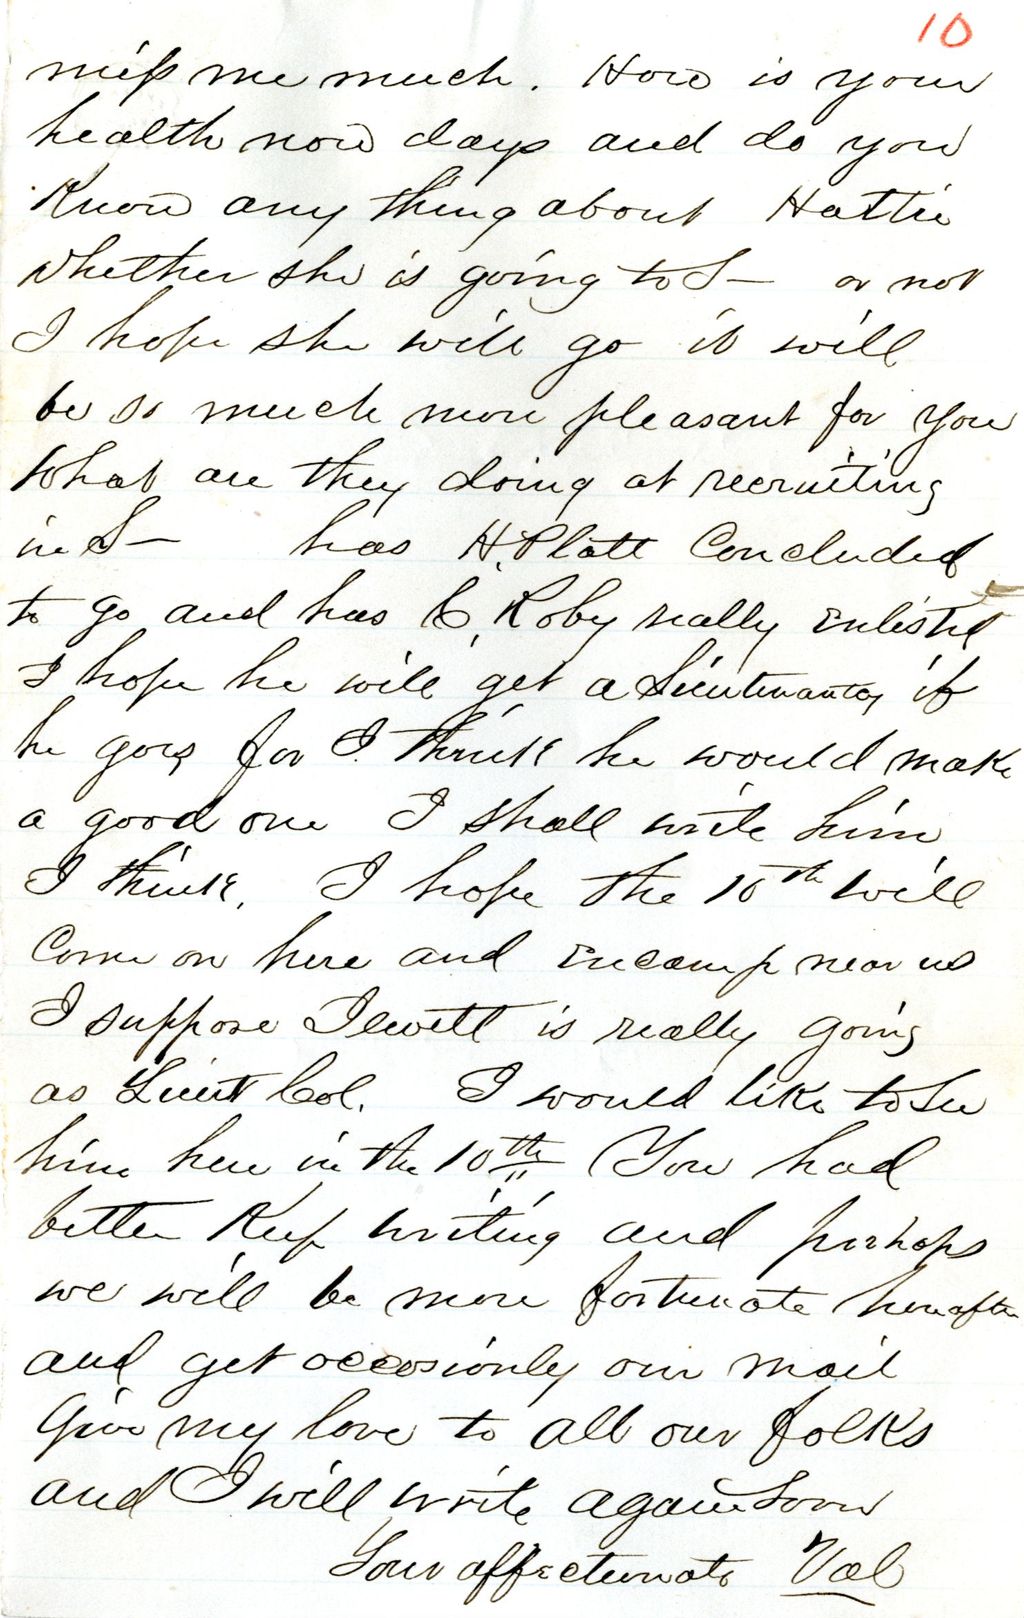 10
miss me much. How is your
health now days and do you
Know any thing about Hattie
whether she is going to S— or not
I hope she will go it will
be so much more pleasant for you
What are they doing at recruiting
in S— has H. Platt Concluded
to go and has C. Roby really enlisted
I hope he will get a Lieutenantcy if
he goes for I think he would make
a good one I shall write him
I think. I hope the 10th will
Come on here and encamp near us
I suppose Jewett is really going
as Lieut Col. I would like to See
him here in the 10th You had
better Keep writing and perhaps
we will be more fortunate hereafter
and get occosionly our mail
Give my love to all our folks
and I will write again Soon
Your affectionate Val